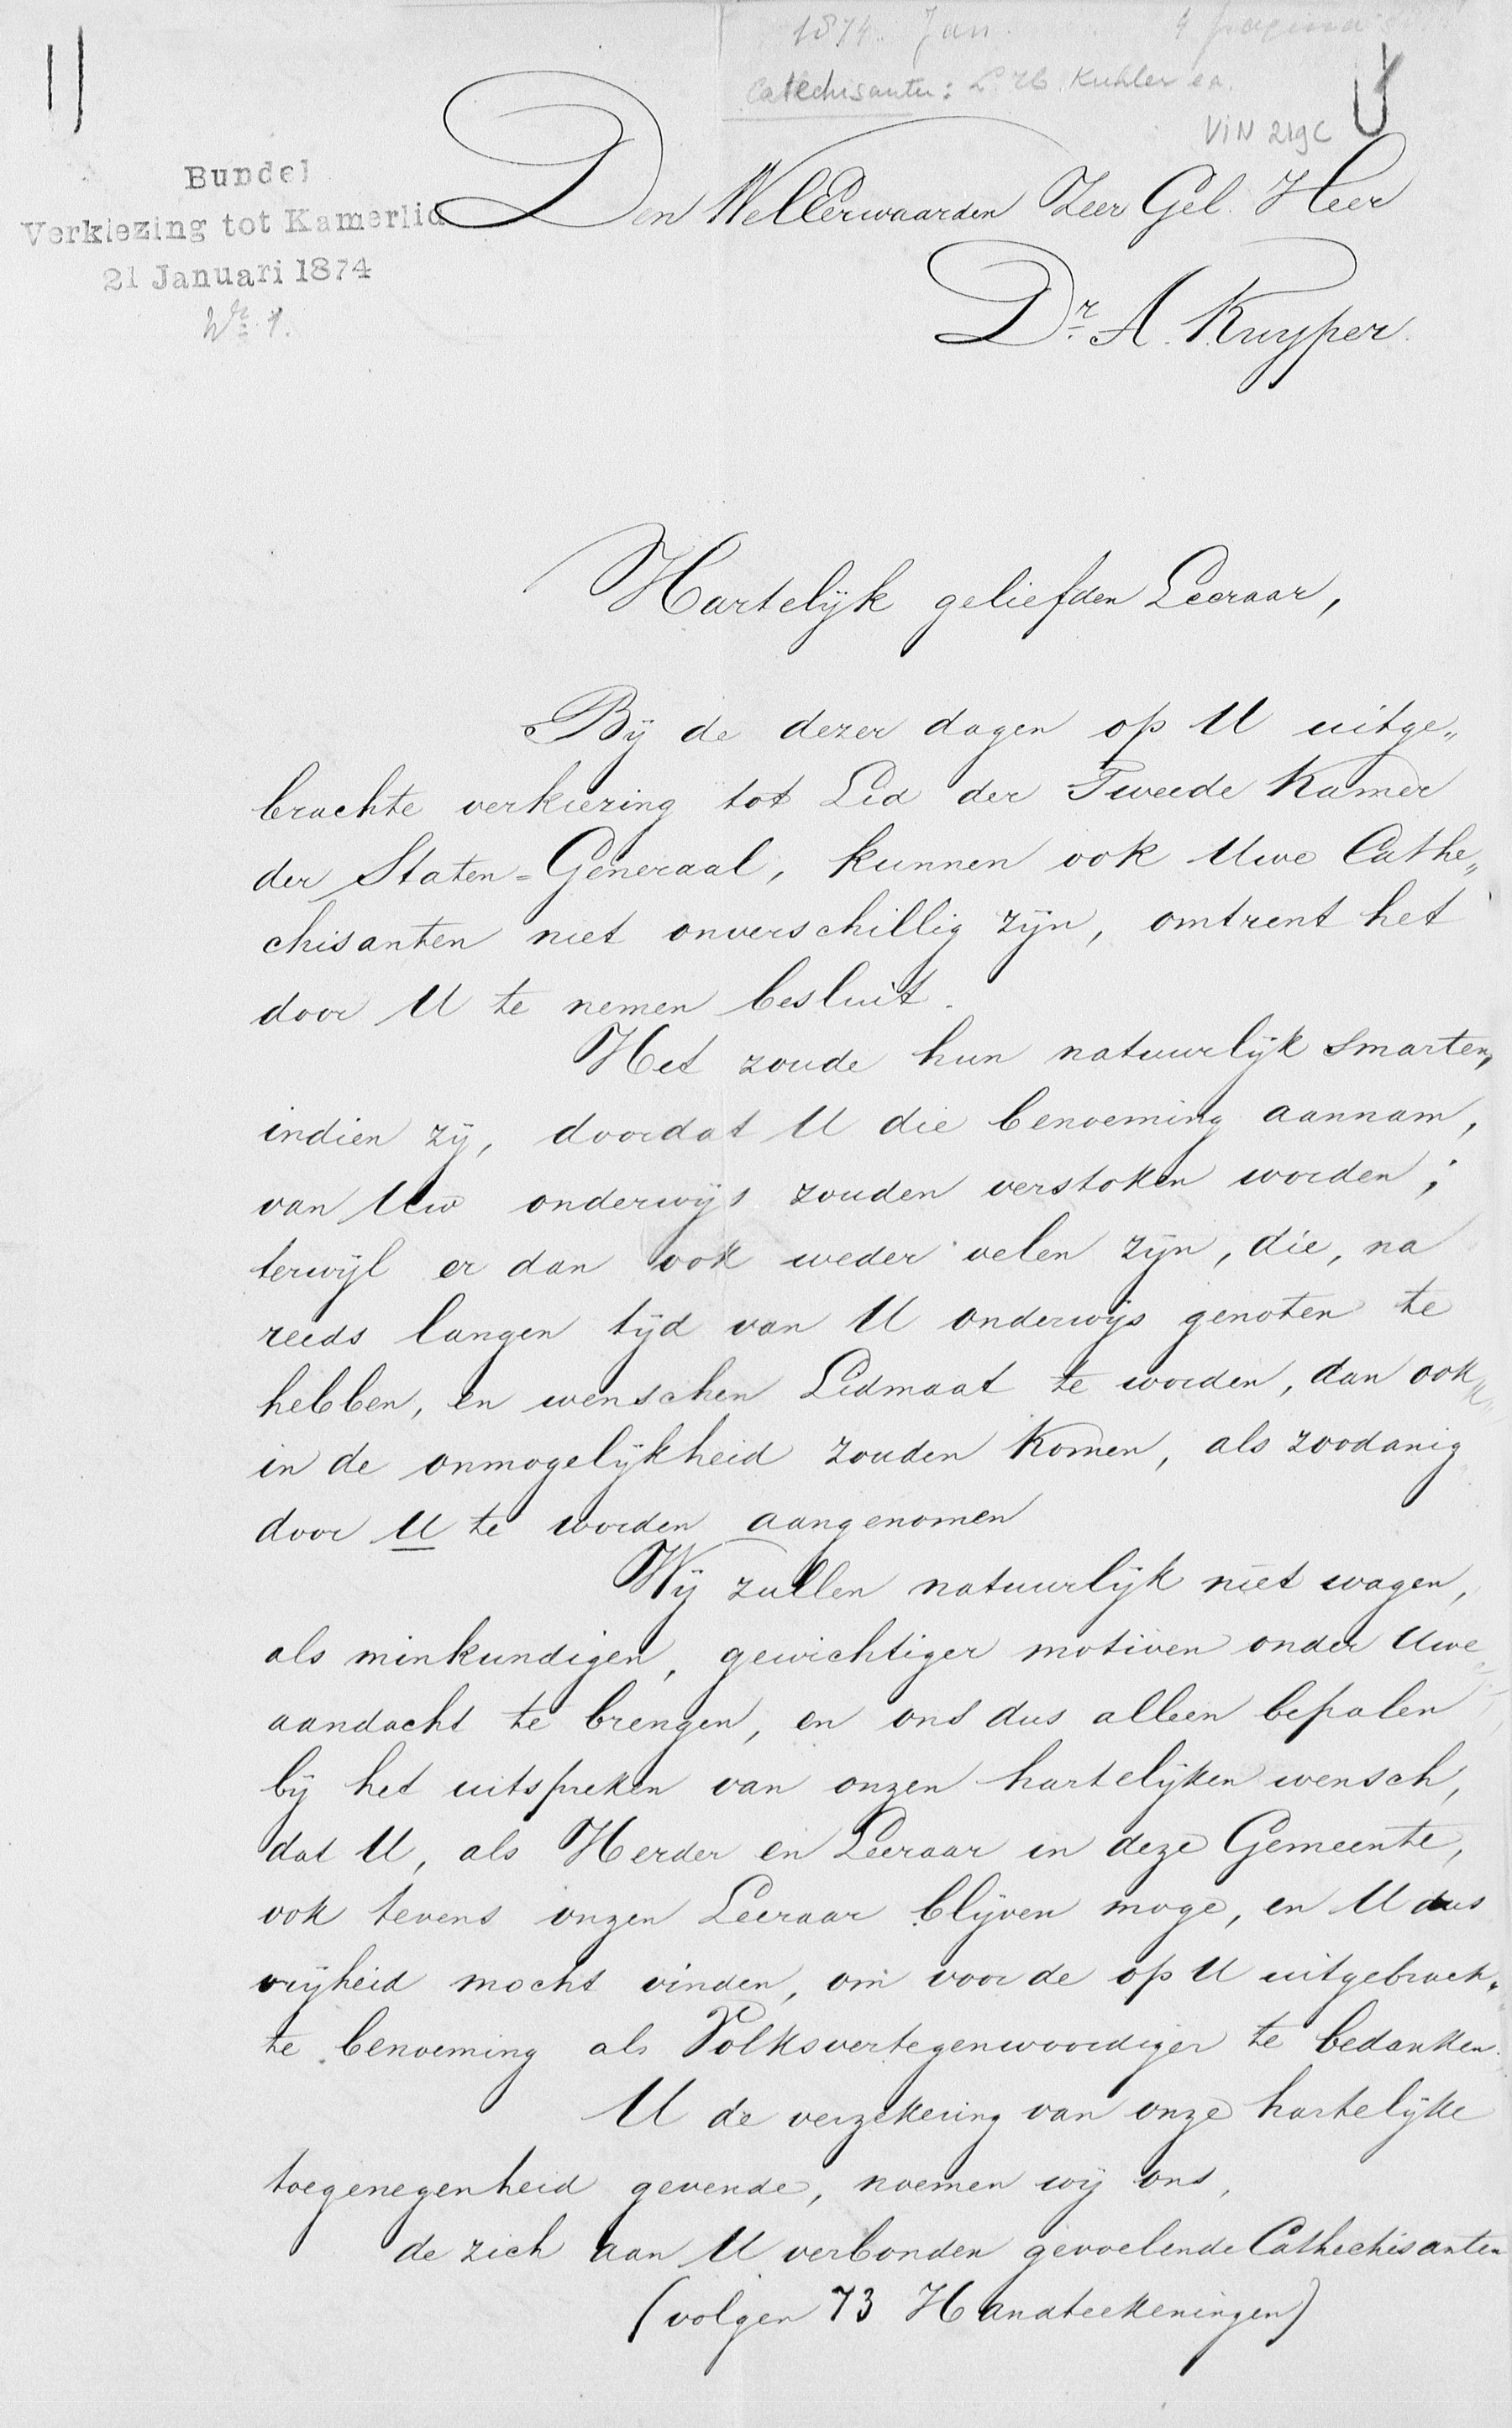 1874. Jan. 4 pagina's
Catechisanten: L. H. Kuhler ea.
VIN 219C
Bundel
Verkiezing tot Kamerlid
21 Januari 1874
Nr. 1.
Den WelEerwaarden Zeer Gel. Heer
Dr. A. Kuyper.
Hartelijk geliefden Leeraar,
Bij de dezer dagen op U uitge„
brachte verkiezing tot Lid der Tweede Kamer
der Staten=Generaal, kunnen ook Uwe Cathe„
chisanten niet onverschillig zijn, omtrent het
door U te nemen besluit.
Het zoude hun natuurlijk smarten,
indien zij, doordat U die benoeming aannam,
van Uw onderwijs zouden verstoken worden;
terwijl er dan ook weder velen zijn, die, na
reeds langen tijd van U onderwijs genoten te
hebben, en wenschen Lidmaat te worden, dan ook
in de onmogelijkheid zouden komen, als zoodanig
door U te worden aangenomen
Wij zullen natuurlijk niet wagen,
als minkundigen, gewichtiger motiven onder Uwe
aandacht te brengen, en ons dus alleen bepalen
bij het uitspreken van onzen hartelijken wensch,
dat U, als Herder en Leeraar in deze Gemeente,
ook tevens onzen Leeraar blijven moge, en U dus
vrijheid mocht vinden, om voor de op U uitgebrach„
te benoeming als Volksvertegenwoordiger te bedanken.
U de verzekering van onze hartelijke
toegenegenheid gevende, noemen wij ons,
de zich aan U verbonden gevoelende Cathechisanten
(volgen 73 Handteekeningen)